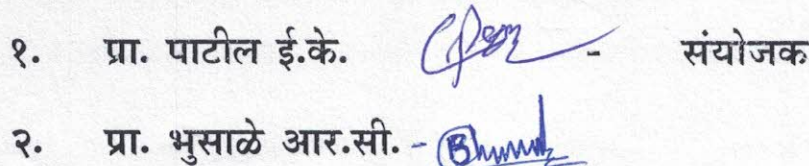 १. प्रा. पाटील ई.के. - संयोजक
२. प्रा. भुसाळे आर.सी. -